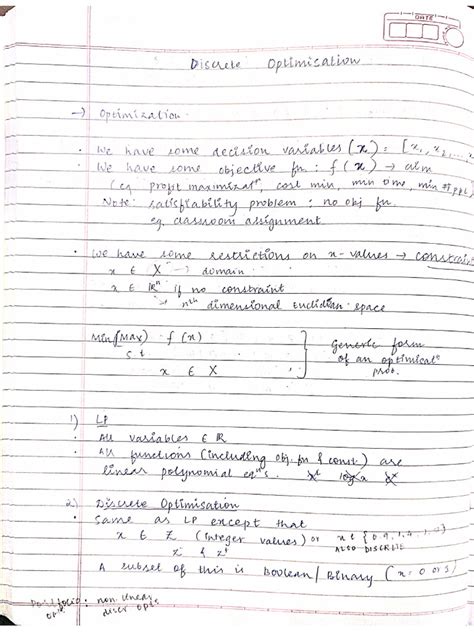 DATE
Discrete Optimisation
→ Optimization
• We have some decision variables (x) = [x₁, x₂, ...
• We have some objective fn : f(x) → aim
(eg profit maximizatⁿ, cost min, min time, min of ppl)
Note: satisfiability problem : no obj fn.
eg. classroom assignment
• We have some restrictions on x-values → constraint
x ∈ X → domain
x ∈ ℝⁿ if no constraint
↳ nth dimensional Euclidian space
Min(Max) f(x) } Generic form
s.t of an optimisatⁿ
x ∈ X prob.
1) LP
• All variables ∈ ℝ
• All functions (including obj. fn & const.) are
linear polynomial eqⁿs.
2) Discrete Optimisation
• Same as LP except that
x ∈ Z (Integer values) or
ALSO DISCRETE
A subset of this is Boolean/Binary (x = 0 or 1)
Portfolio : non-linear
optⁿ discr optⁿ